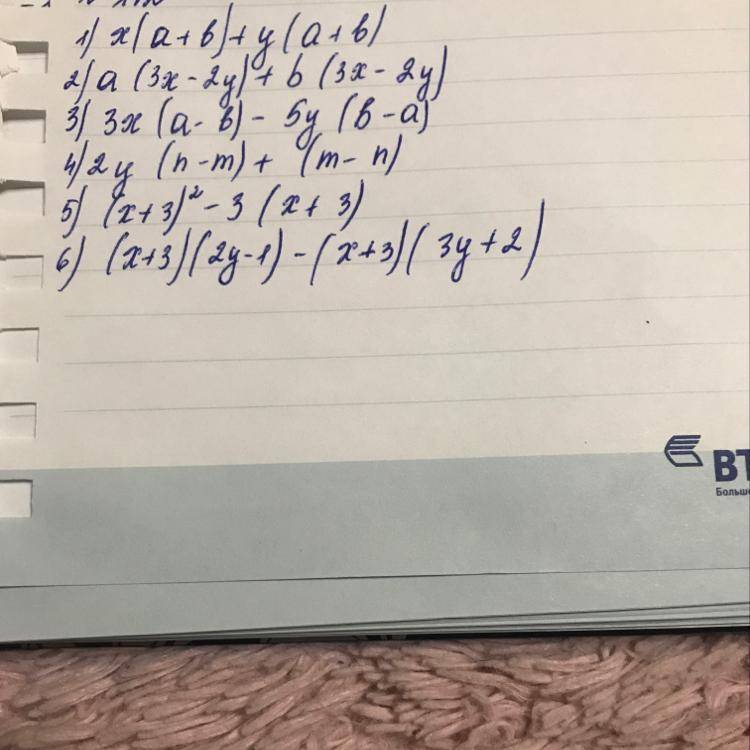 1) x(a+b)+y(a+b)
2) a (3x-2y)+b (3x-2y)
3) 3x (a-b)-5y (b-a)
4) 2y (n-m)+ (m-n)
5) (x+3)²-3 (x+3)
6) (x+3)(2y-1)-(x+3)(3y+2)
ВТ
Больше